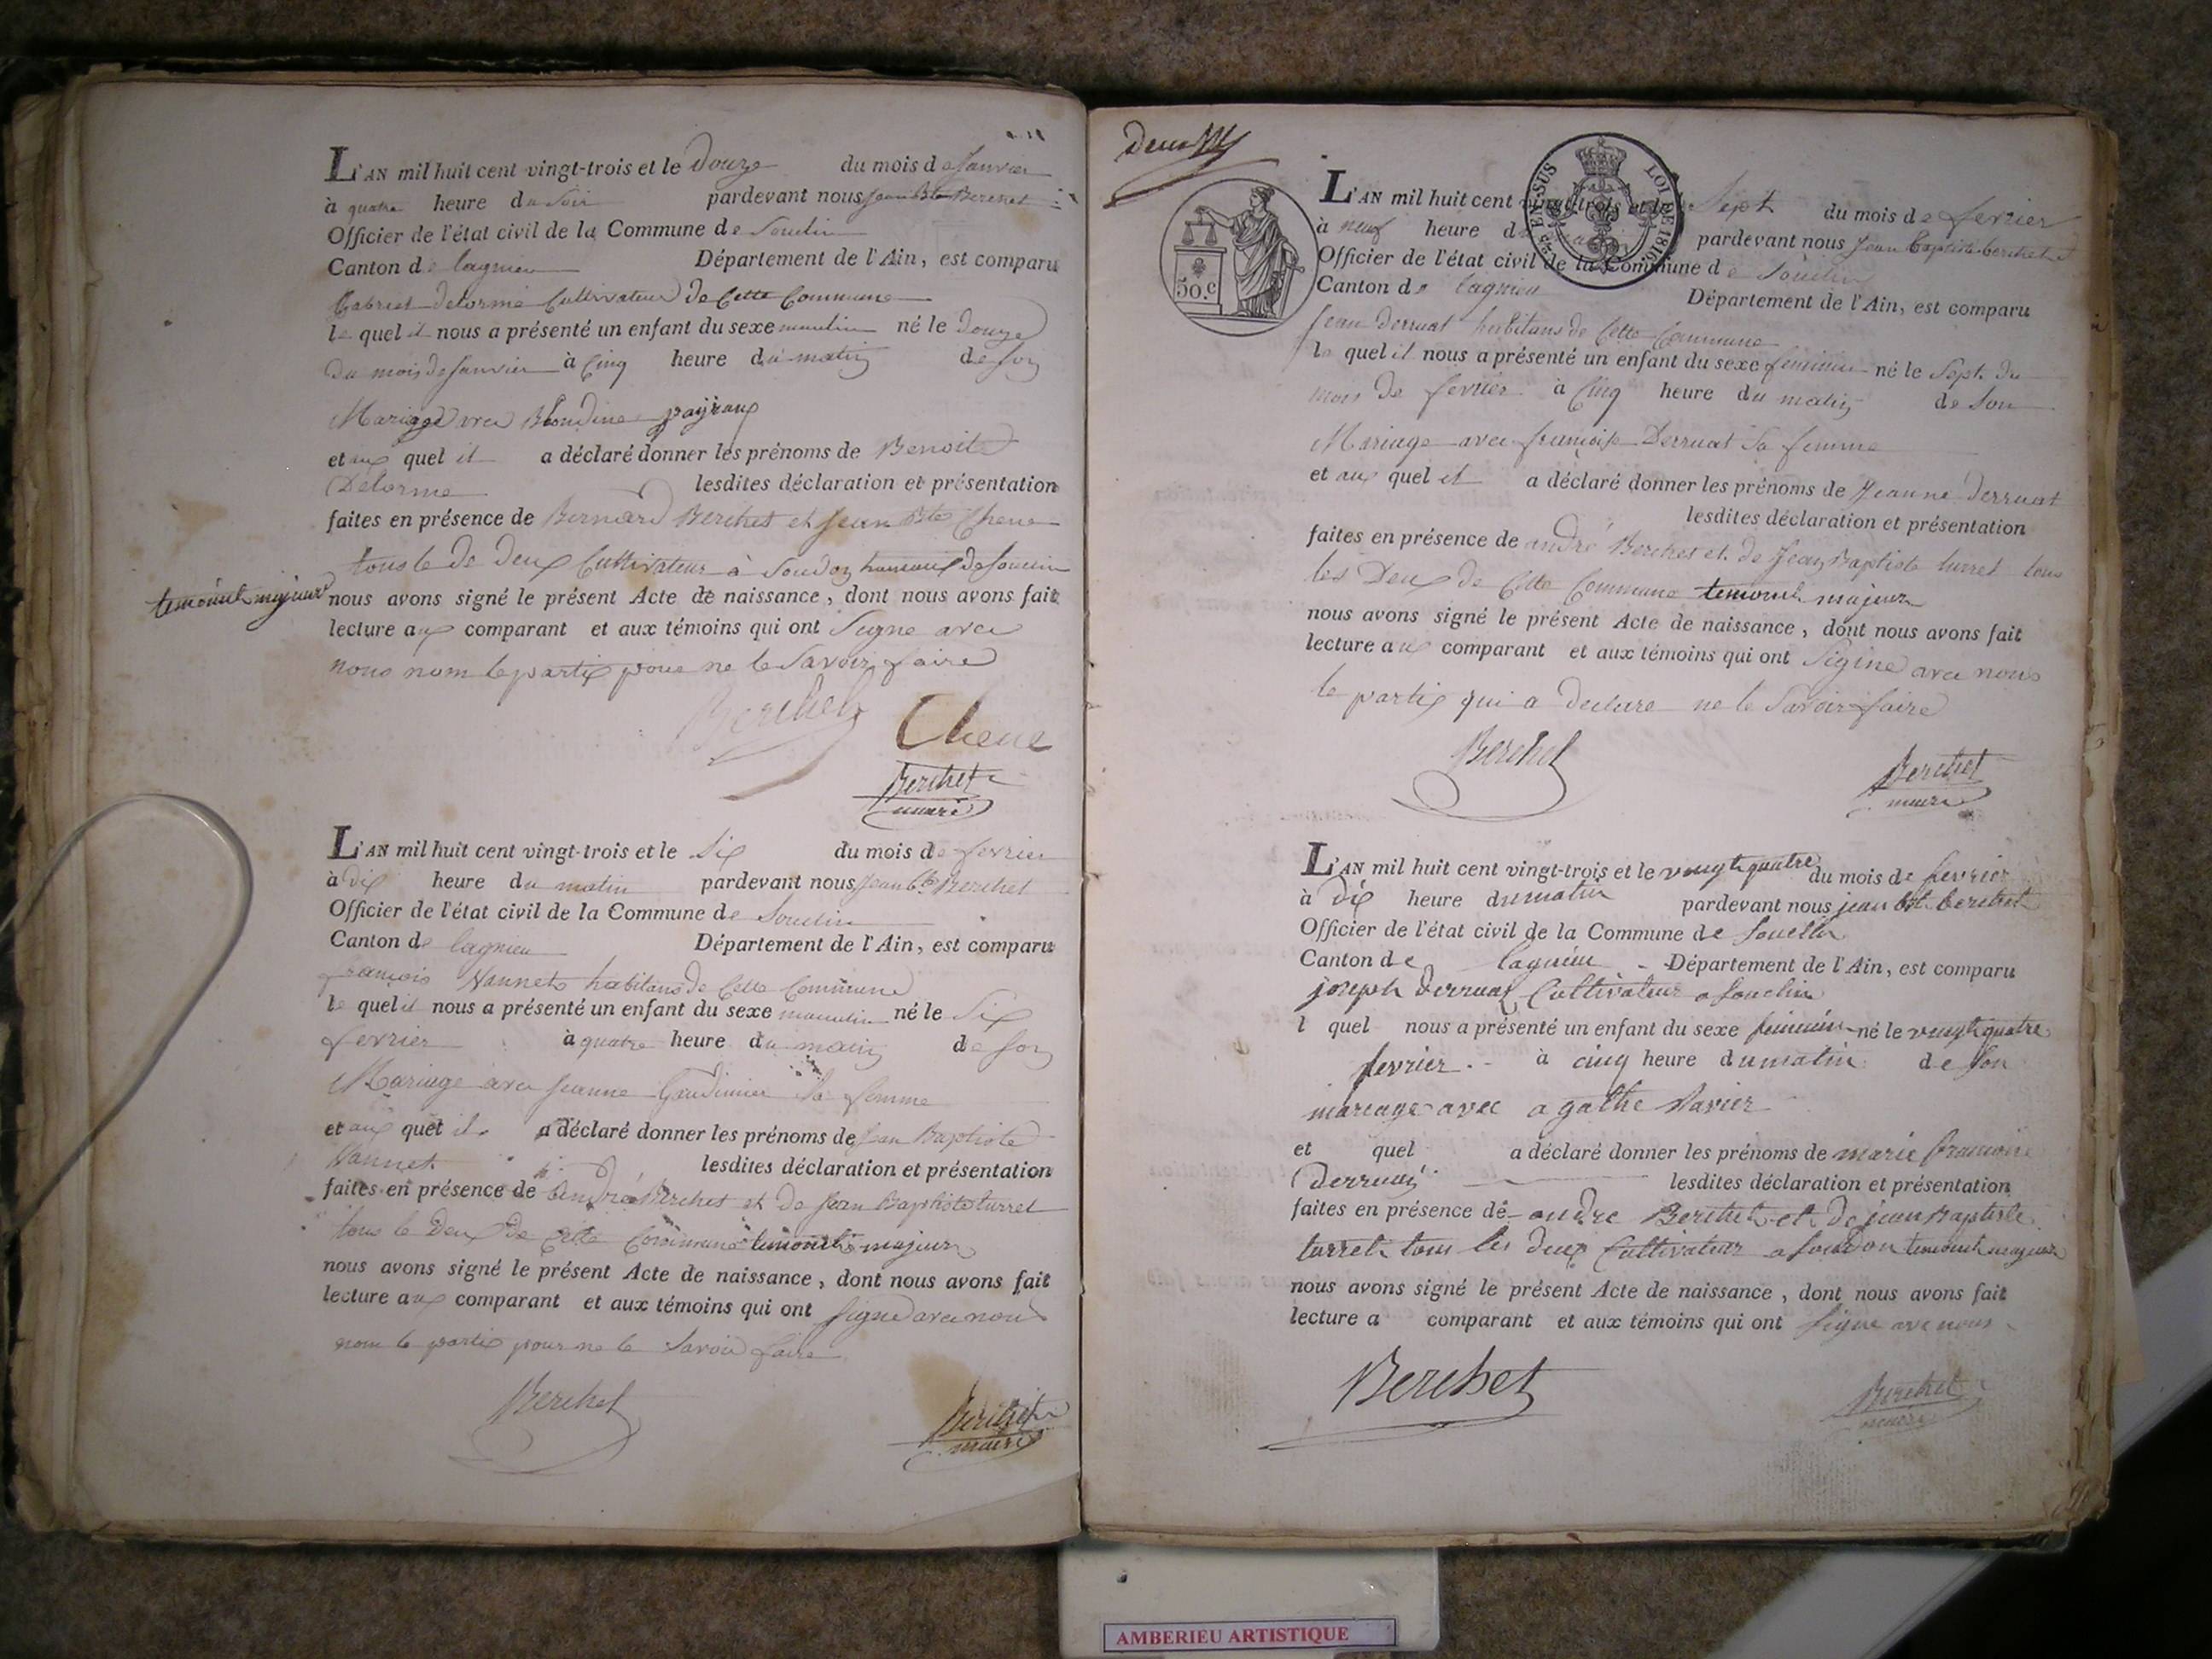 L'AN mil huit cent vingt-trois et le Douze du mois de Janvier
à quatre heure du Soir pardevant nous Jean Bte Berchet
Officier de l'état civil de la Commune de Souclin
Canton de lagnieu Département de l'Ain, est comparu
Gabriel Delorme Cultivateur de Cette Commune
le quel il nous a présenté un enfant du sexe masculin né le Douze
Du mois de Janvier à Cinq heure du matin de son
Mariage avec Blondine payraux
et aux quel il a déclaré donner les prénoms de Benoit
Delorme lesdites déclaration et présentation
faites en présence de Bernard Berchet et Jean Bte Chene
tous le De Deux Cultivateur à Soudon hameaux de Souclin
temoint majeur nous avons signé le présent Acte de naissance, dont nous avons fait
lecture aux comparant et aux témoins qui ont Signe avec
nous nom le partix pour ne le Savoir faire
Berchet Chene
Berchet
maire
L'AN mil huit cent vingt-trois et le Six du mois de fevrier
à Dix heure du matin pardevant nous Jean Bte Berchet
Officier de l'état civil de la Commune de Souclin
Canton de lagnieu Département de l'Ain, est comparu
françois Vannet habitans de Cette Commune
le quel il nous a présenté un enfant du sexe masculin né le Six
fevrier à quatre heure du matin de son
Mariage avec Jeanne Sa femme
et aux quel il a déclaré donner les prénoms de Jean Baptiste
Vannet lesdites déclaration et présentation
faites en présence de André Berchet et de Jean Baptiste turret
tous le Deux De Cette Commune temoint majeur
nous avons signé le présent Acte de naissance, dont nous avons fait
lecture aux comparant et aux témoins qui ont Signe avec nous
nom le partix pour ne le Savoir faire
Berchet
Berchet
maire
50.c
EN SUS LOI DE 1816
L'AN mil huit cent vingt-trois et le Sept du mois de fevrier
à neuf heure du matin pardevant nous Jean Baptiste berchet
Officier de l'état civil de la Commune de Souclin
Canton de lagnieu Département de l'Ain, est comparu
Jean Derruat habitans de Cette Commune
le quel il nous a présenté un enfant du sexe feminin né le Sept du
mois de fevrier à Cinq heure du matin de Son
Mariage avec françoise Derruat Sa femme
et aux quel il a déclaré donner les prénoms de Jeanne Derruat
lesdites déclaration et présentation
faites en présence de andré Berchet et de Jean Baptiste turret tous
les Deux de Cette Commune temoint majeur
nous avons signé le présent Acte de naissance, dont nous avons fait
lecture aux comparant et aux témoins qui ont Signe avec nous
le partix qui a Declare ne le Savoir faire
Berchet
Berchet
maire
L'AN mil huit cent vingt-trois et le vingt quatre du mois de fevrier
à Dix heure du matin pardevant nous jean bte berchet
Officier de l'état civil de la Commune de Souclin
Canton de lagnieu Département de l'Ain, est comparu
joseph derruat Cultivateur a Souclin
l quel nous a présenté un enfant du sexe feminin né le vingt quatre
fevrier à cinq heure du matin de Son
mariage avec agathe Varier
et quel a déclaré donner les prénoms de marie francoise
Derruat lesdites déclaration et présentation
faites en présence de andre Berchet et de jean Baptiste
turret tous les deux Cultivateur a Soudon temoint majeur
nous avons signé le présent Acte de naissance, dont nous avons fait
lecture a comparant et aux témoins qui ont Signe avec nous
Berchet
Berchet
maire
AMBERIEU ARTISTIQUE